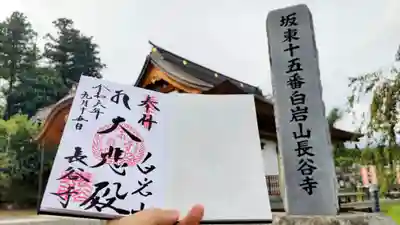 坂東十五番白岩山長谷寺
奉拝
白岩山
大悲殿
長谷寺
九月十五日